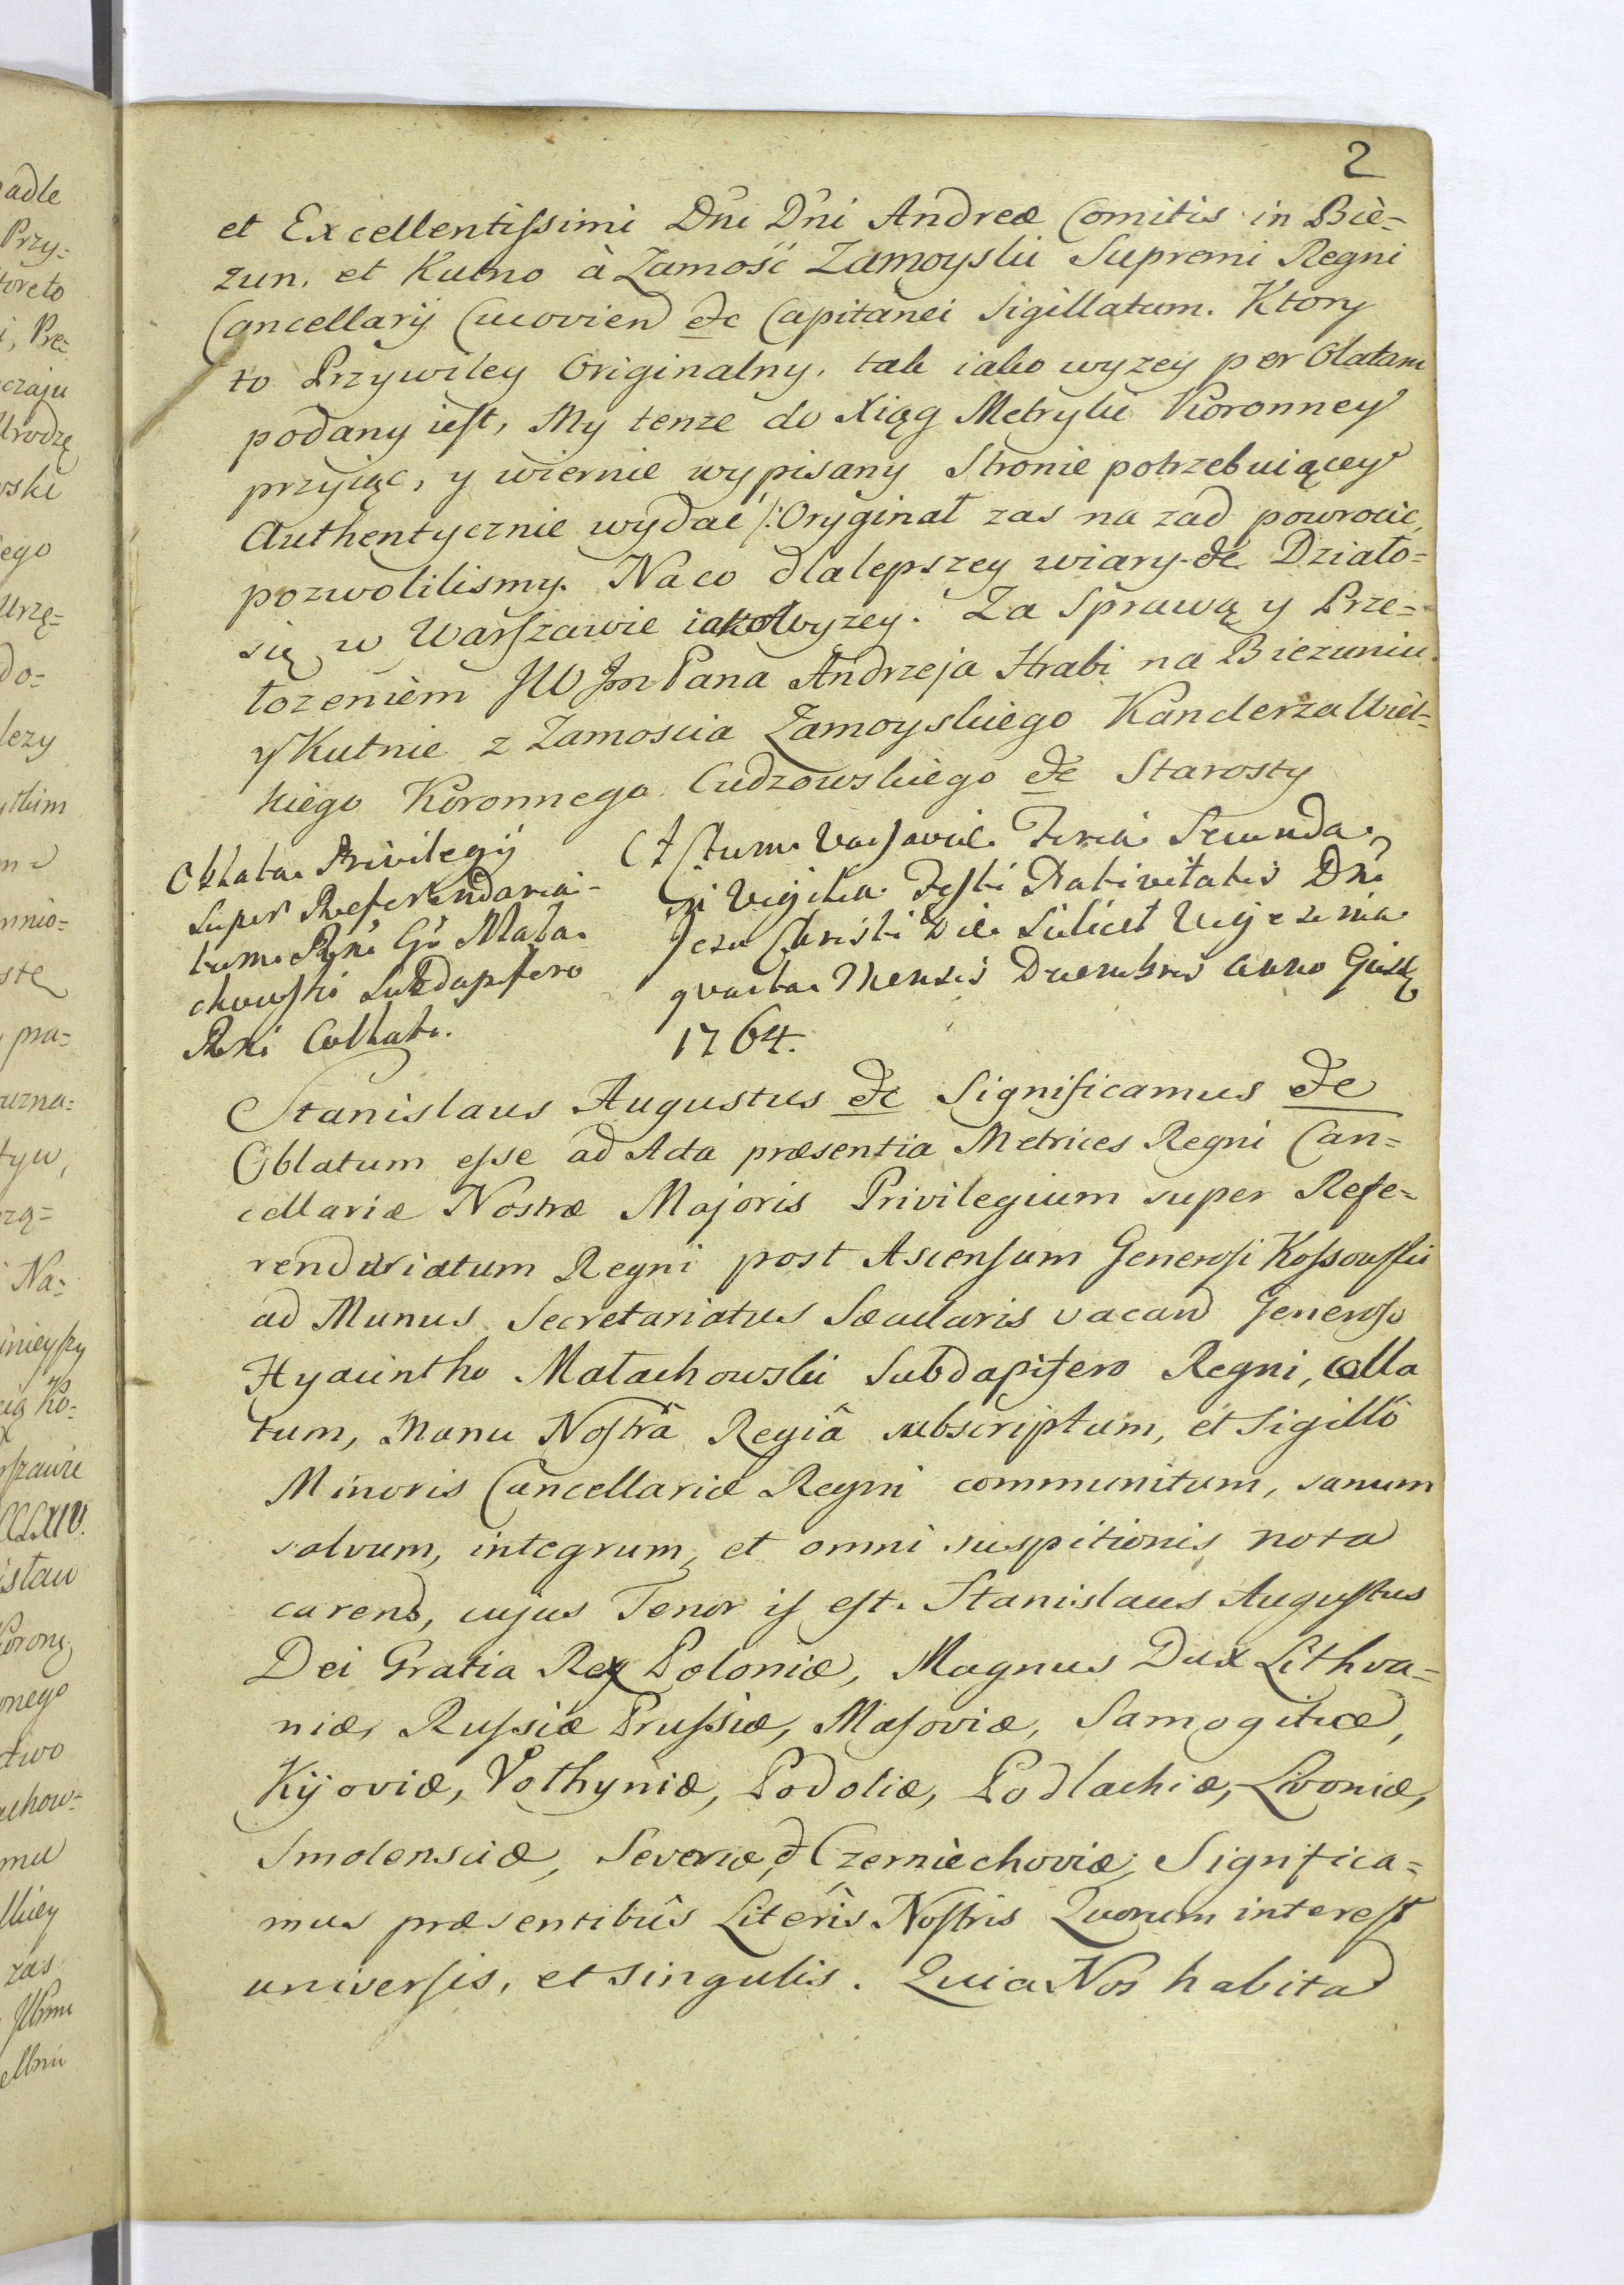 2
et Excellentissimi Dni Dni Andreæ Comitis in Bie=
zun, et Kutno à Zamość Zamoyski Supremi Regni
Cancellarij &c Capitanei Sigillatum. Ktory
to Przywiley Originalny, tak iako wyzey per Olatam
podany iest, My tenze do Xiąg Metryki Koronney
przyiąc, y wiernie wypisany Stronie potrzebuiącey
Authentycznie wydać /: Oryginał zas na zad powrocic,
pozwolilismy. Na co dla lepszey wiary &c Działo=
się w Warszawie iako wyzey. Za Sprawą y Prze=
łozeniem JW Jm Pana Andrzeja Hrabi na Biezuniu
y Kutnie z Zamoscia Zamoyskiego Kanclerza Wiel=
kiego Koronnego &c Starosty
Oblata Privilegij
super Referendaria=
tum Rni Gō Mała=
chowski Subdapifero
Rni Collati.
Actum Varsaviæ Feria Secunda
in Vigilia Festi Nativitatis Dni
Jesu Christi Die Scilicet Vigesima
quarta Mensis Decembris Anno
1764.
Stanislaus Augustus &c Significamus &c
Oblatum esse ad Acta præsentia Metrices Regni Can=
cellariæ Nostræ Majoris Privilegium super Refe=
rendariatum Regni post Ascensum Generosi Kossowski
ad Munus Secretariatus Sæcularis vacand Generoso
Hyacintho Małachowski Subdapifero Regni, colla
tum, Manu Nostrâ Regiâ subscriptum, et Sigillô
Minoris Cancellariæ Regni communitum, sanum
salvum, integrum, et omni suspitionis nota
carens, cujus Tenor is est. Stanislaus Augustus
Dei Gratia Rex Poloniæ, Magnus Dux Lithva=
niæ, Russiæ Prussiæ, Masoviæ, Samogitiæ,
Kijoviæ, Volhyniæ, Podoliæ, Podlachiæ, Livoniæ,
Smolensciæ, Severiæ, & Czerniechoviæ, Significa=
mus præsentibûs Literîs Nostris Quorum interest
universis, et singulis. Quia Nos habita